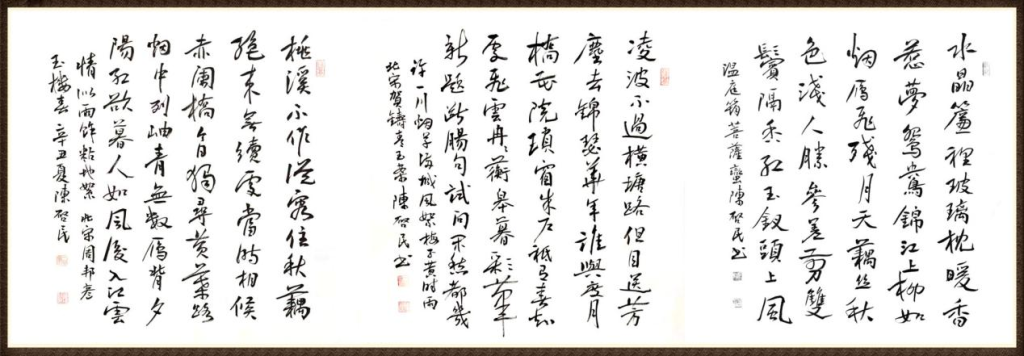 水晶簾裡玻璃枕暖香
惹夢鴛鴦錦江上柳如
烟雁飛殘月天藕丝秋
色淺人勝參差剪雙
鬢隔香红玉钗頭上風
温庭筠菩薩蠻陳啓民书
凌波不過横塘路但目送芳
塵去錦瑟華年誰與度月
橋花院瑣窗朱户衹有春知
處飛雲冉冉蘅皋暮彩筆
新題断腸句試问闲愁都幾
許一川烟草满城風絮梅子黄时雨
北宋贺铸青玉案陳啓民书
桃溪不作從容住秋藕
絕来無續處當时相候
赤阑橋今日獨尋黄葉路
烟中列岫青無數雁背夕
陽红欲暮人如風後入江雲
情似雨馀粘地絮 北宋周邦彦
玉樓春 辛丑夏陳啓民